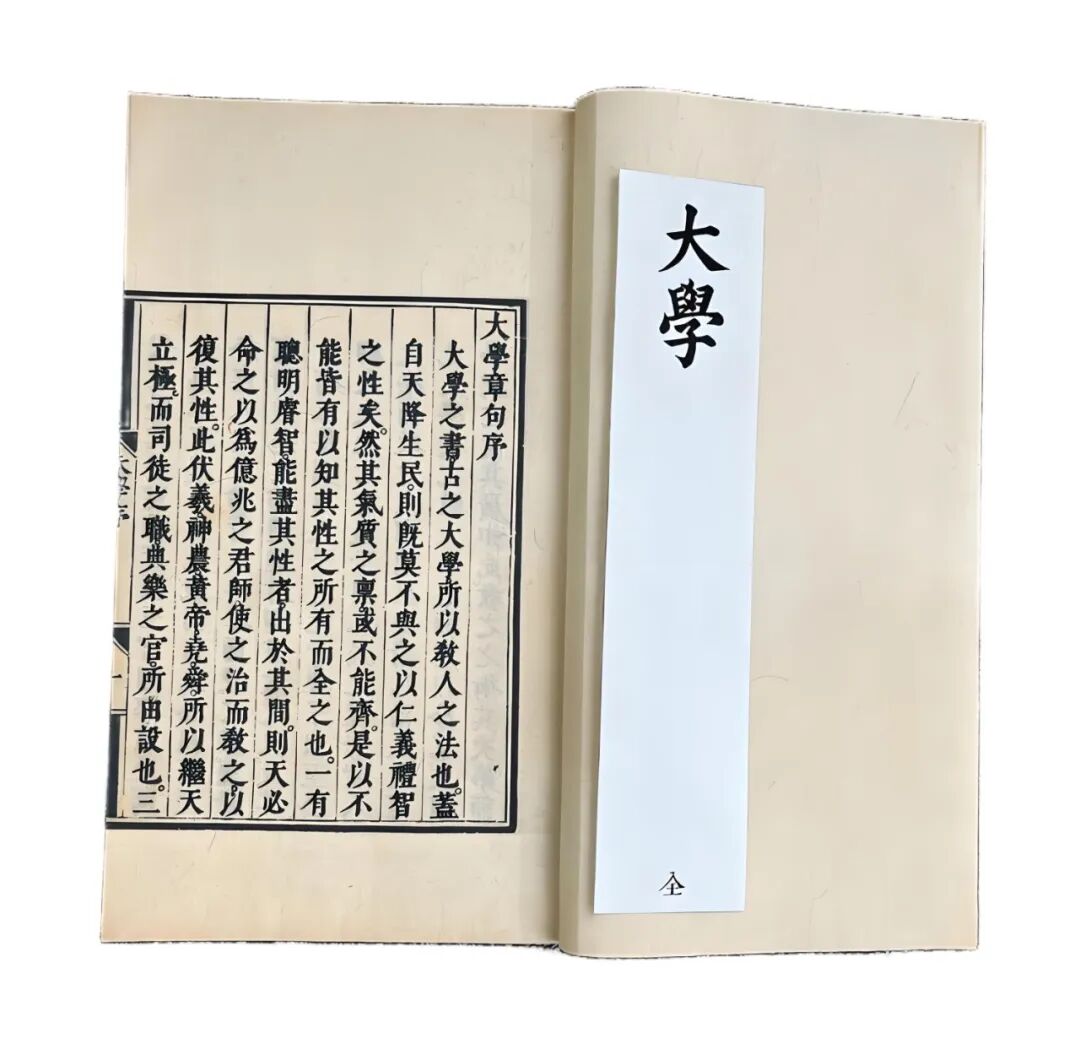 大學
全
大學章句序
大學之書。古之大學所以敎人之法也。蓋
自天降生民。則旣莫不與之以仁義禮智
之性矣。然其氣質之禀。或不能齊。是以不
能皆有以知其性之所有而全之也。一有
聰明睿智。能盡其性者。出於其間。則天必
命之以爲億兆之君師。使之治而敎之。以
復其性。此伏羲。神農。黃帝。堯。舜。所以繼天
立極。而司徒之職。典樂之官。所由設也。三